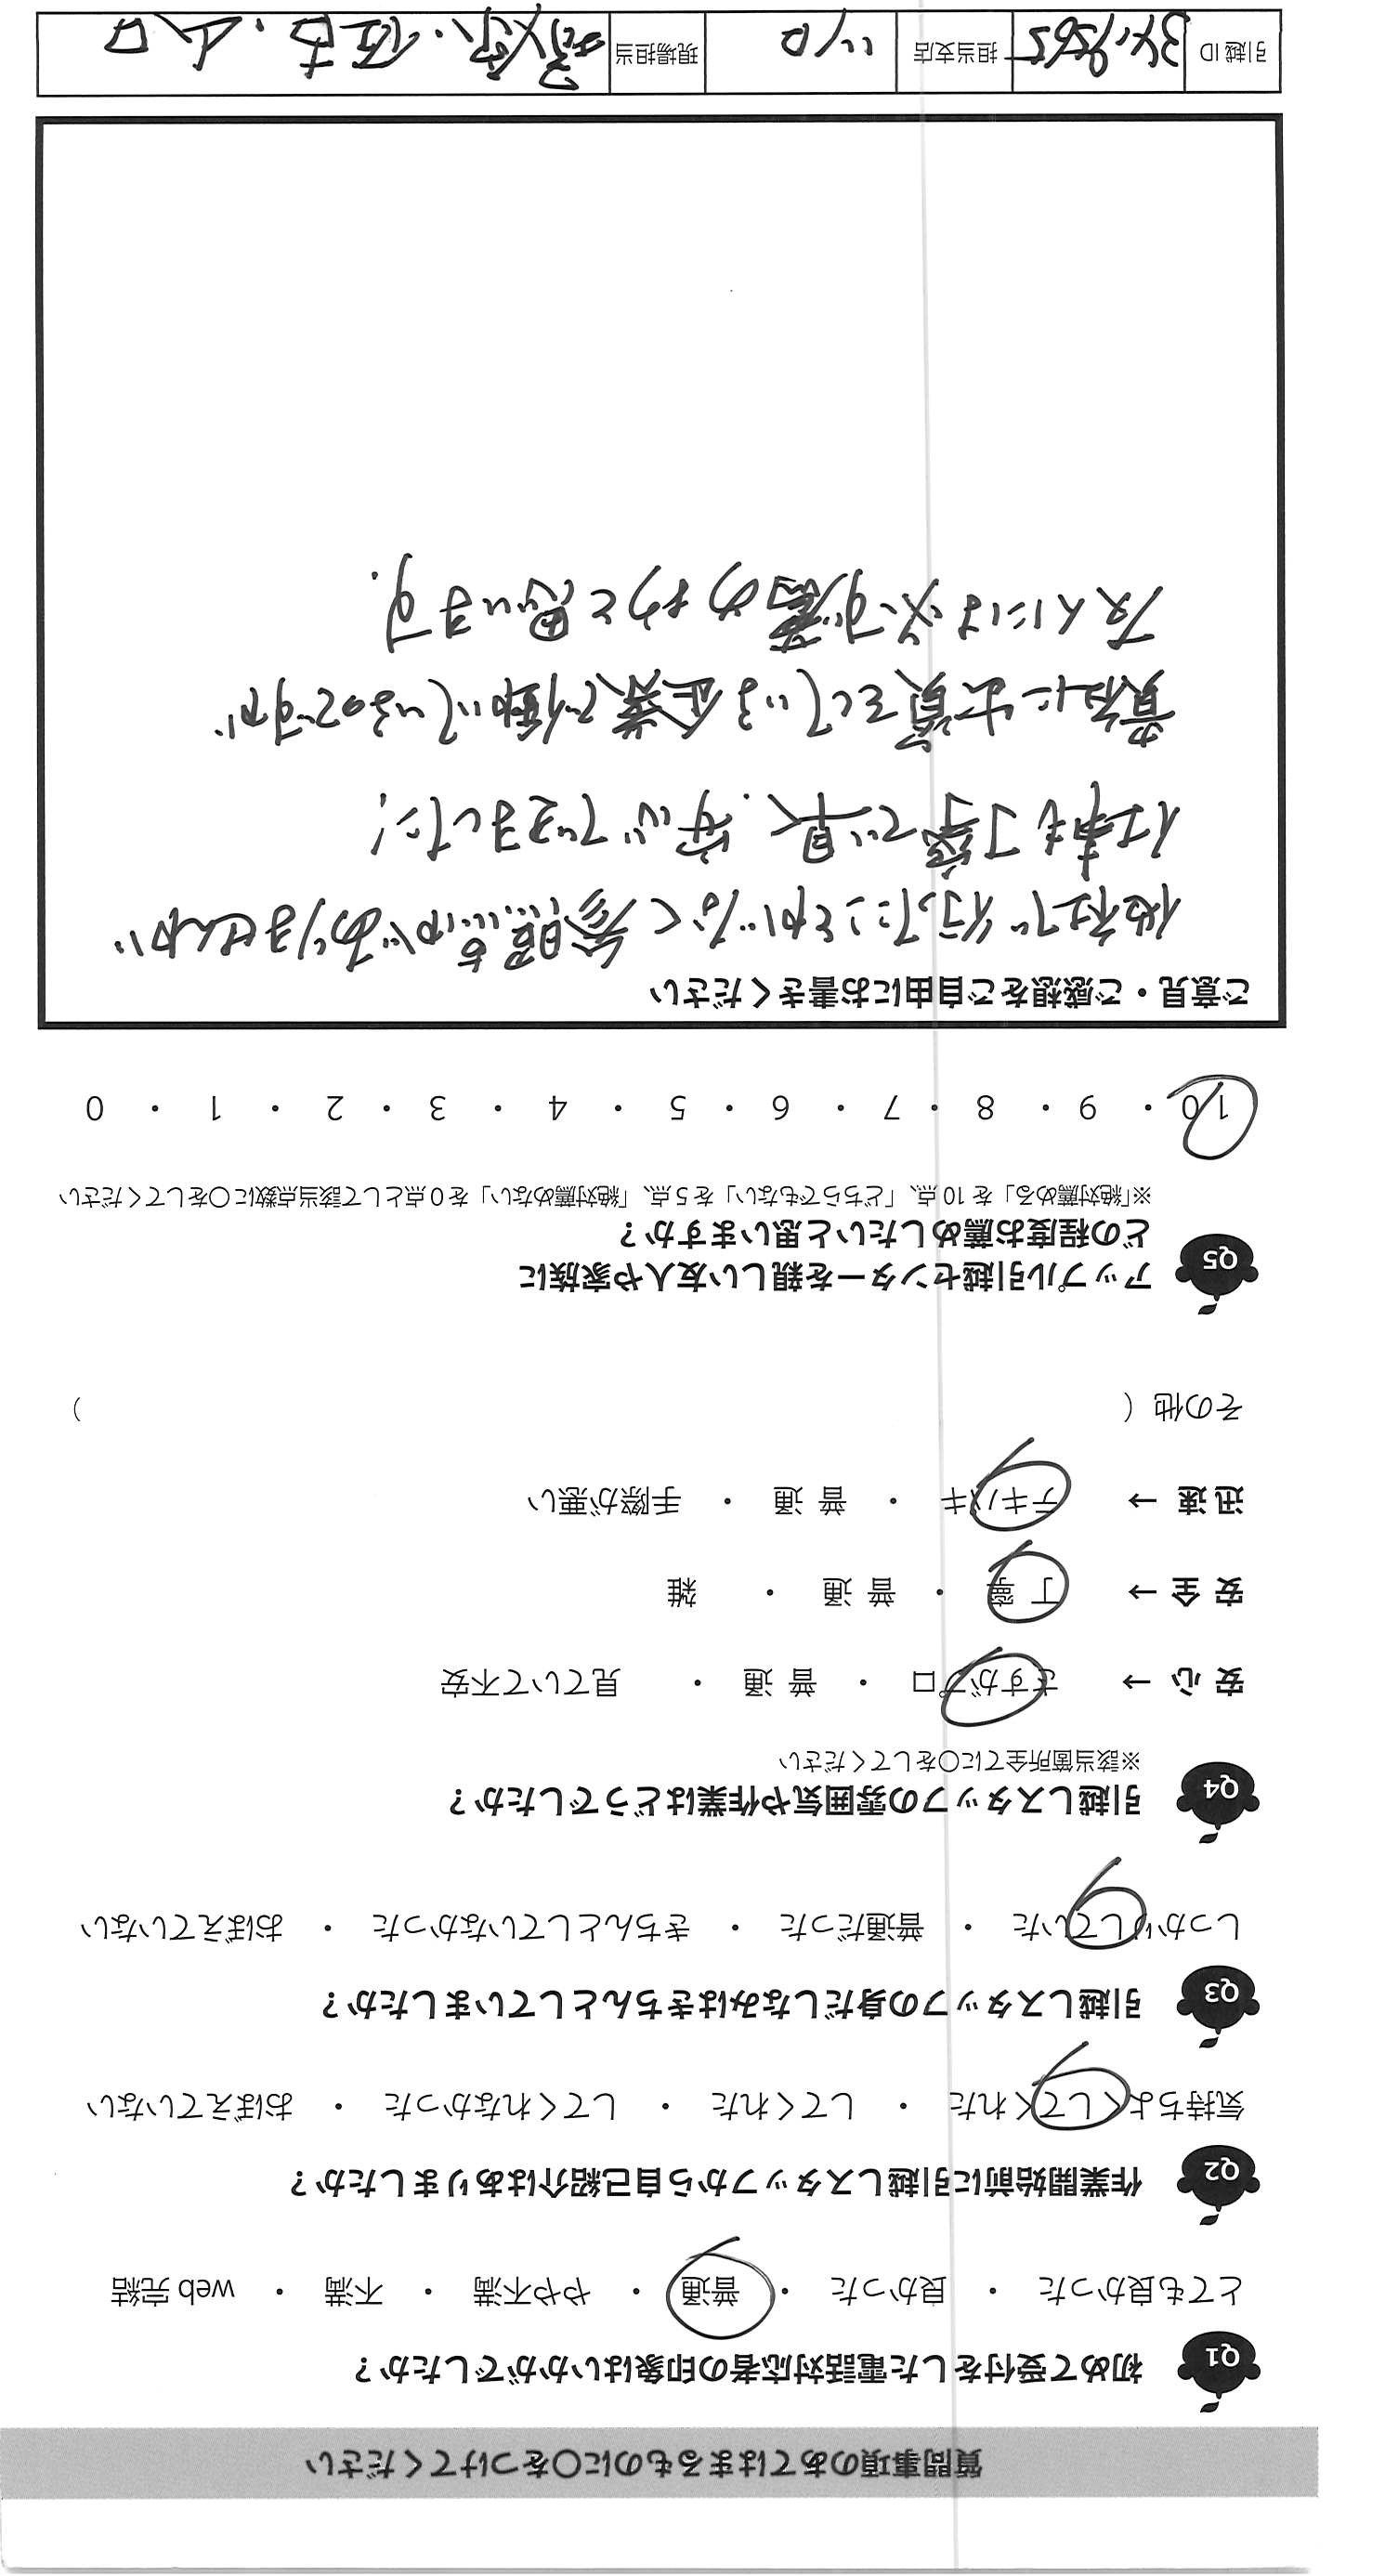 質問事項のあてはまるものに〇をつけてください
Q1 初めて受付をした電話対応者の印象はいかがでしたか？
とても良かった ・ 良かった ・ 普通 ・ やや不満 ・ 不満 ・ web 完結
Q2 作業開始前に引越しスタッフから自己紹介はありましたか？
気持ちよくしてくれた ・ してくれた ・ してくれなかった ・ おぼえていない
Q3 引越しスタッフの身だしなみはきちんとしていましたか？
しっかりしていた ・ 普通だった ・ きちんとしていなかった ・ おぼえていない
Q4 引越しスタッフの雰囲気や作業はどうでしたか？
※該当箇所全てに〇をしてください
安 心 → さすがプロ ・ 普 通 ・ 見ていて不安
安 全 → 丁 寧 ・ 普 通 ・ 雑
迅 速 → テキパキ ・ 普 通 ・ 手際が悪い
その他（ ）
Q5 アップル引越センターを親しい友人や家族に
どの程度お薦めしたいと思いますか？
※「絶対薦める」を 10 点、「どちらでもない」を 5 点、「絶対薦めない」を 0 点として該当点数に〇をしてください
10 ・ 9 ・ 8 ・ 7 ・ 6 ・ 5 ・ 4 ・ 3 ・ 2 ・ 1 ・ 0
ご意見・ご感想をご自由にお書きください
他社で行ったことがなく参照点がありませんが
仕事も丁寧で早く、安心できました！
貴社に出資をしている企業で働いているのですが、
友人には必ず薦めようと思います。
引越 ID 担当支店 現場担当 ・佐古・山口